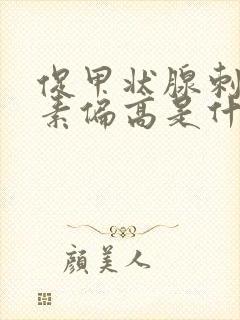 促甲状腺刺
素偏高是什
顔美人